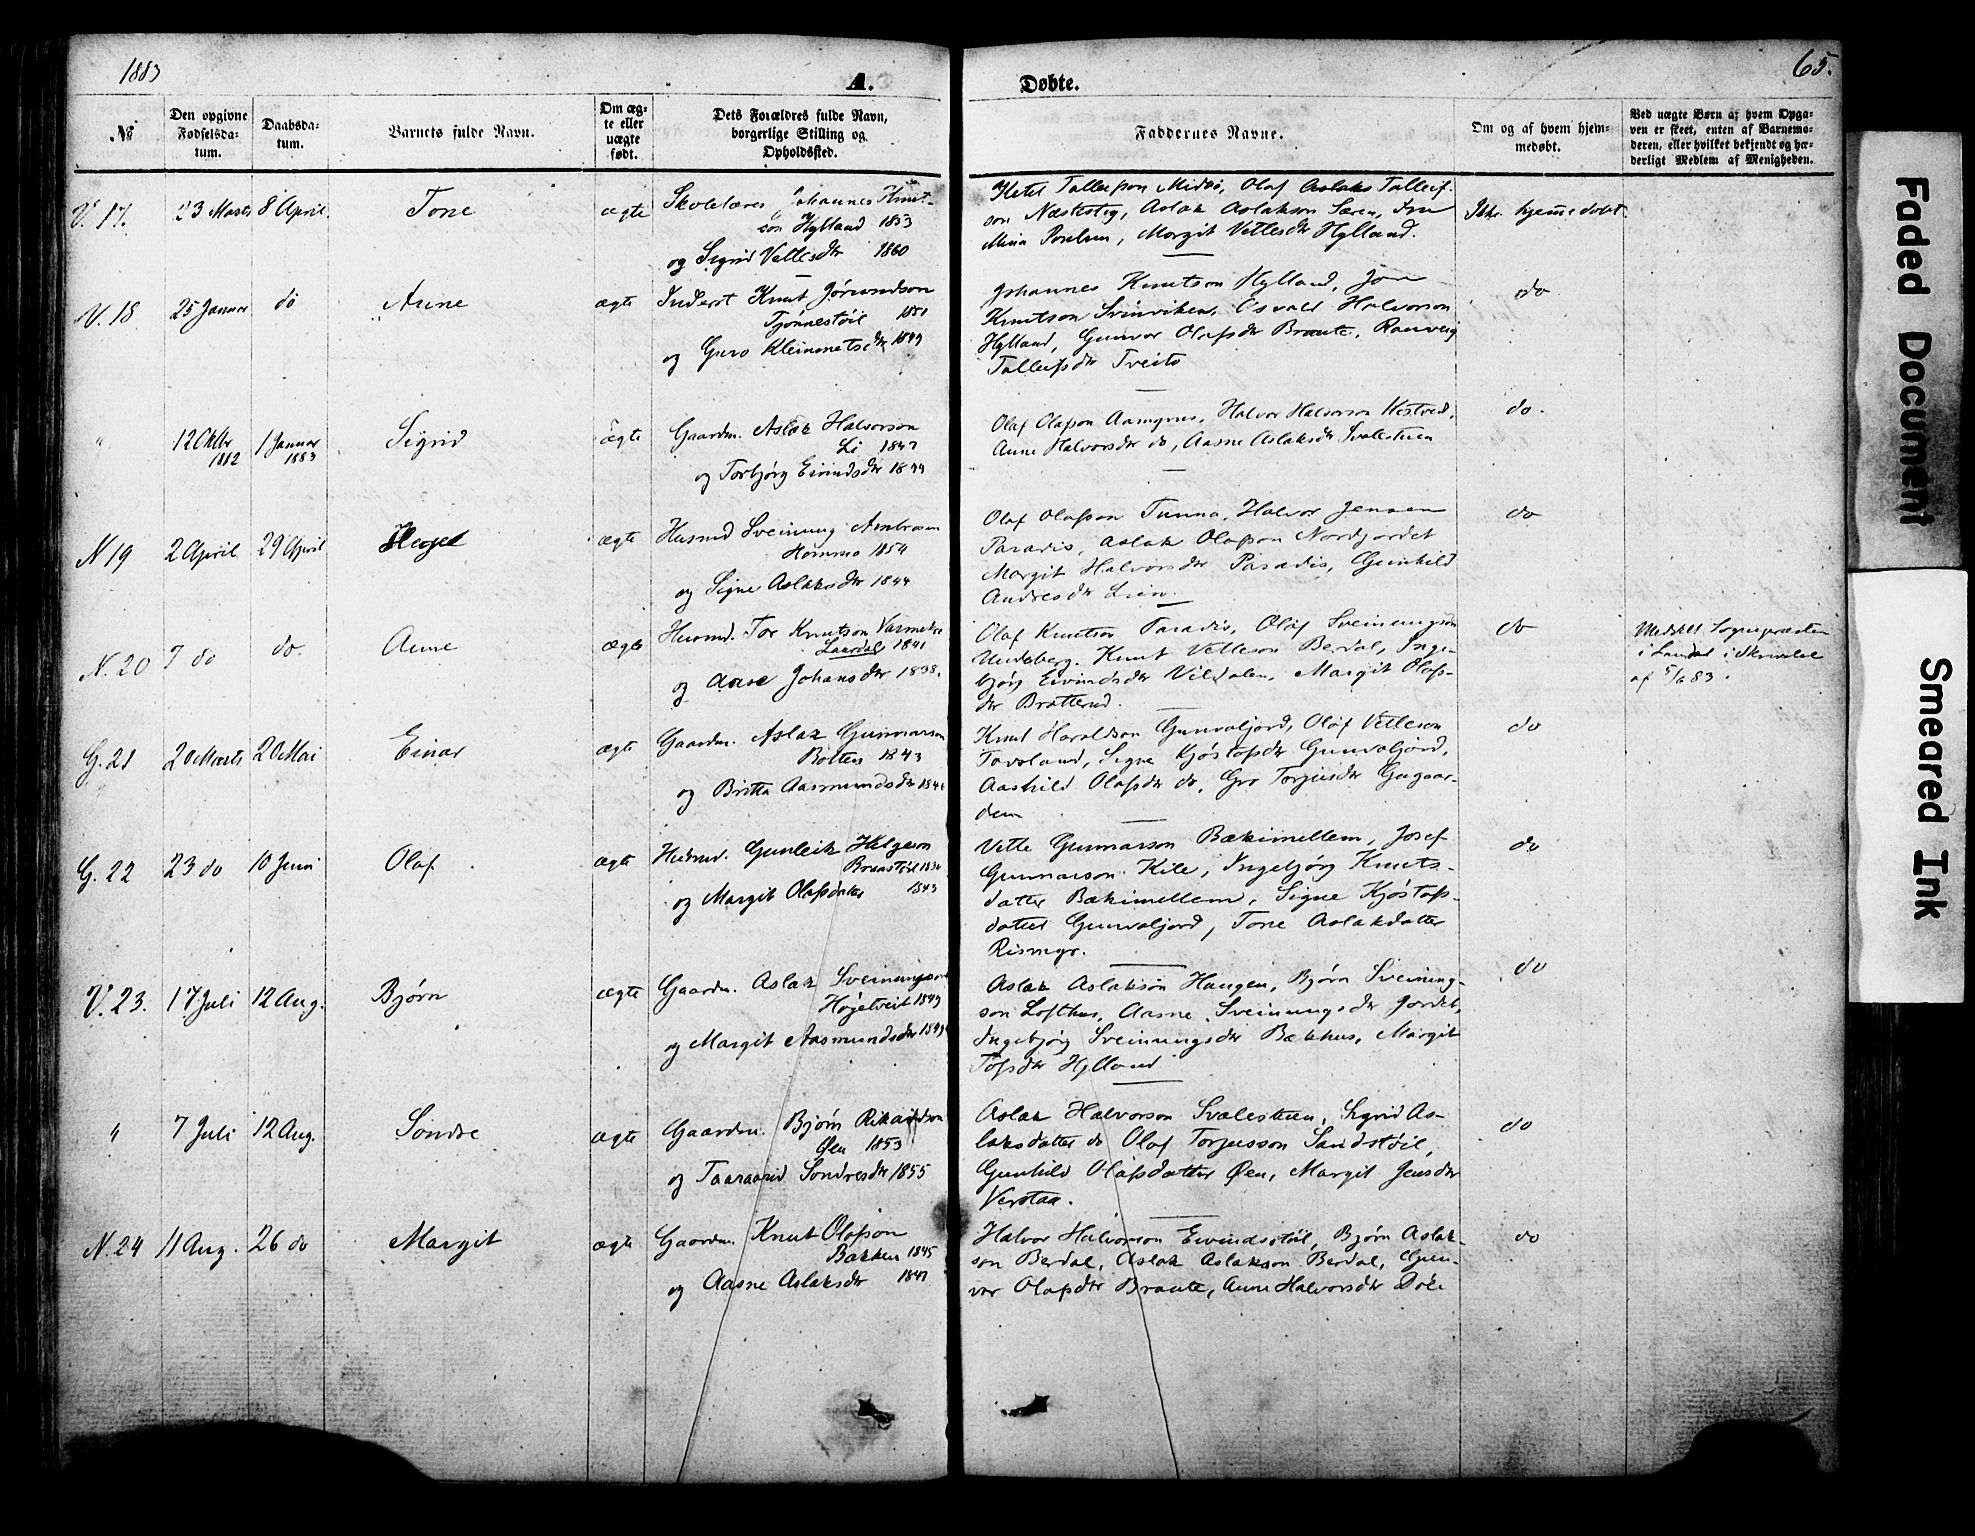 1883
A.
Døbte.
65.
№
Den opgivne Fødselsdatum.
Daabsdatum.
Barnets fulde Navn.
Om ægte eller uægte født.
Dets Forældres fulde Navn, borgerlige Stilling og Opholdssted.
Faddernes Navne.
Om og af hvem hjemmedøbt.
Ved uægte Børn af hvem Opgaven er skeet, enten af Barnemoderen, eller hvilket bekjendt og hæderligt Medlem af Menigheden.
V. 17. 23 Marts 8 April. Tone ægte Skolelærer Johannes Knut-
son Hylland 1853
og Sigrid Vetlesdtr 1860
Ketil Talleifson Midbø, Olaf Aslaks Talleif-
son Næstestog, Aslak Aslakson Særen,
Mina Poulsen, Margit Vetlesdtr Hylland.
Ikke hjemmedøbt.
V. 18 25 Januar do Anne ægte Inderst Knut Jørundson
Tjønnestøil 1851
og Guro Kleimmetsdtr 1849
Johannes Knutson Hylland, Jon
Knutson Svinviken, Osvald Halvorson
Hylland, Gunvor Olafsdtr Braate, Ranveig
Talleifsdtr Tveito
do
" 12 Oktbr 1882 1 Januar 1883 Sigrid ægte Gaardm. Aslak Halvorson
Li 1847
og Torbjørg Eivindsdtr 1844
Olaf Olafson Aamgrus, Halvor Halvorson Vestved,
Anne Halvorsdtr do, Aasne Aslaksdtr Svalestuen
do.
N 19 2 April 29 April ægte Husmd Sveinung Ambrosen
Hommo 1854
og Signe Aslaksdtr 1844
Olaf Olafson Tunna, Halvor Jensen
Paradis, Aslak Olafson Nordgardet
Margit Halvorsdtr Paradis, Gunhild
Andresdtr Lien.
do
N. 20 7 do do. Anne ægte Husmd. Tor Knutson
Laardal 1841
og Aase Johansdtr 1838.
Olaf Knutson Paradis, Olaf Sveinungson
Undeberg. Knut Vetleson Berdal, Inge-
bjørg Eivindsdtr Vildalen, Margit Olafs-
dtr Brotterud.
do
Meddelt Sognepræsten
i Laurdal i Skrivelse
af 5/6 83.
G. 21 20 Marts 20 Mai Einar ægte Gaardm. Aslak Gunnarson
Botten 1843
og Britta Aasmundsdtr
Knut Haraldson Gunvaljord, Olaf Vetleson
Tovsland, Signe Kjøstofsdtr Gunvaljord,
Aashild Olafsdtr do, Gro Torjusdtr Gugaar-
den
do
G. 22 23 do 10 Juni Olaf ægte Husmd. Gunleik Helgeson
og Margit Olafsdatter 1843
Vetle Gunnarson Bækimellem, Josef
Gunnarson Kile, Ingebjørg Knuts-
datter Bækimellem, Signe Kjøstofs-
datter Gunvaljord, Tone Aslakdatter
Rismyr.
do
V. 23. 17 Juli 12 Aug. Bjørn ægte Gaardm. Aslak Sveinungson
Høgetveit 1849
og Margit Aasmundsdtr 1849
Aslak Aslakson Haugen, Bjørn Sveinung-
son Lofthus, Aasne Sveinungsdtr Jordet,
Ingebjørg Sveinungsdtr Bækhus, Margit
Tofsdtr Hylland
do
" 7 Juli 12 Aug. Sondre ægte Gaardm. Bjørn Rikardson
Øen 1853
og Taaraand Sondresdtr 1855
Aslak Halvorson Svalestuen, Sigrid As-
laksdatter do Olaf Torjusson Sandstøil,
Gunhild Olafsdatter Øen, Margit Jensdtr
Verstaa.
do
N. 24 11 Aug. 26 do Margit ægte Gaardm. Knut Olafson
Bakken 1845
og Aasne Aslaksdtr 1847
Halvor Halvorson Eivindsstøil, Bjørn Aslak-
son Berdal, Aslak Aslakson Berdal, Gun-
vor Olafsdtr Braate, Anne Halvorsdtr
do
Faded Document
Smeared Ink